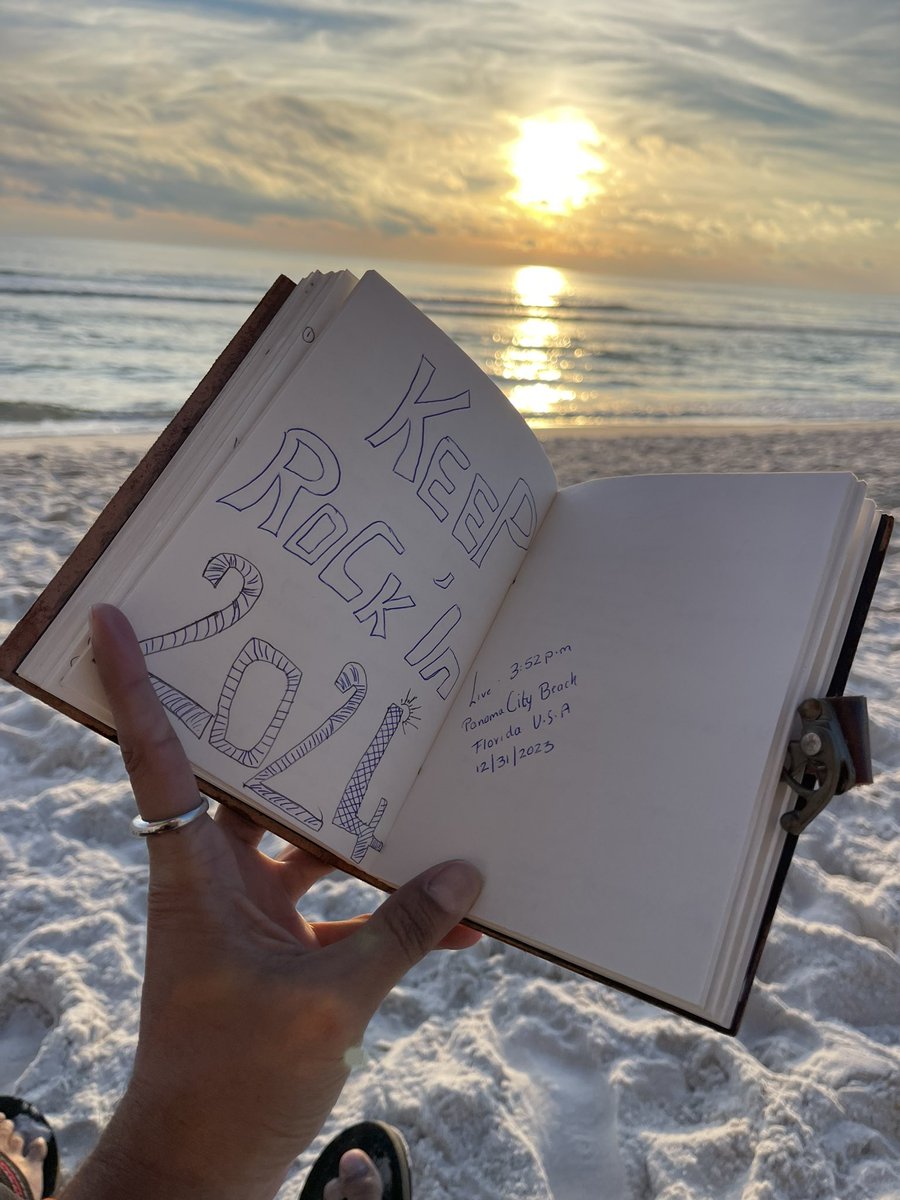 KEEP
ROCK'In
2024
Live. 3:52 p.m
Panama City Beach
Florida U.S.A
12/31/2023